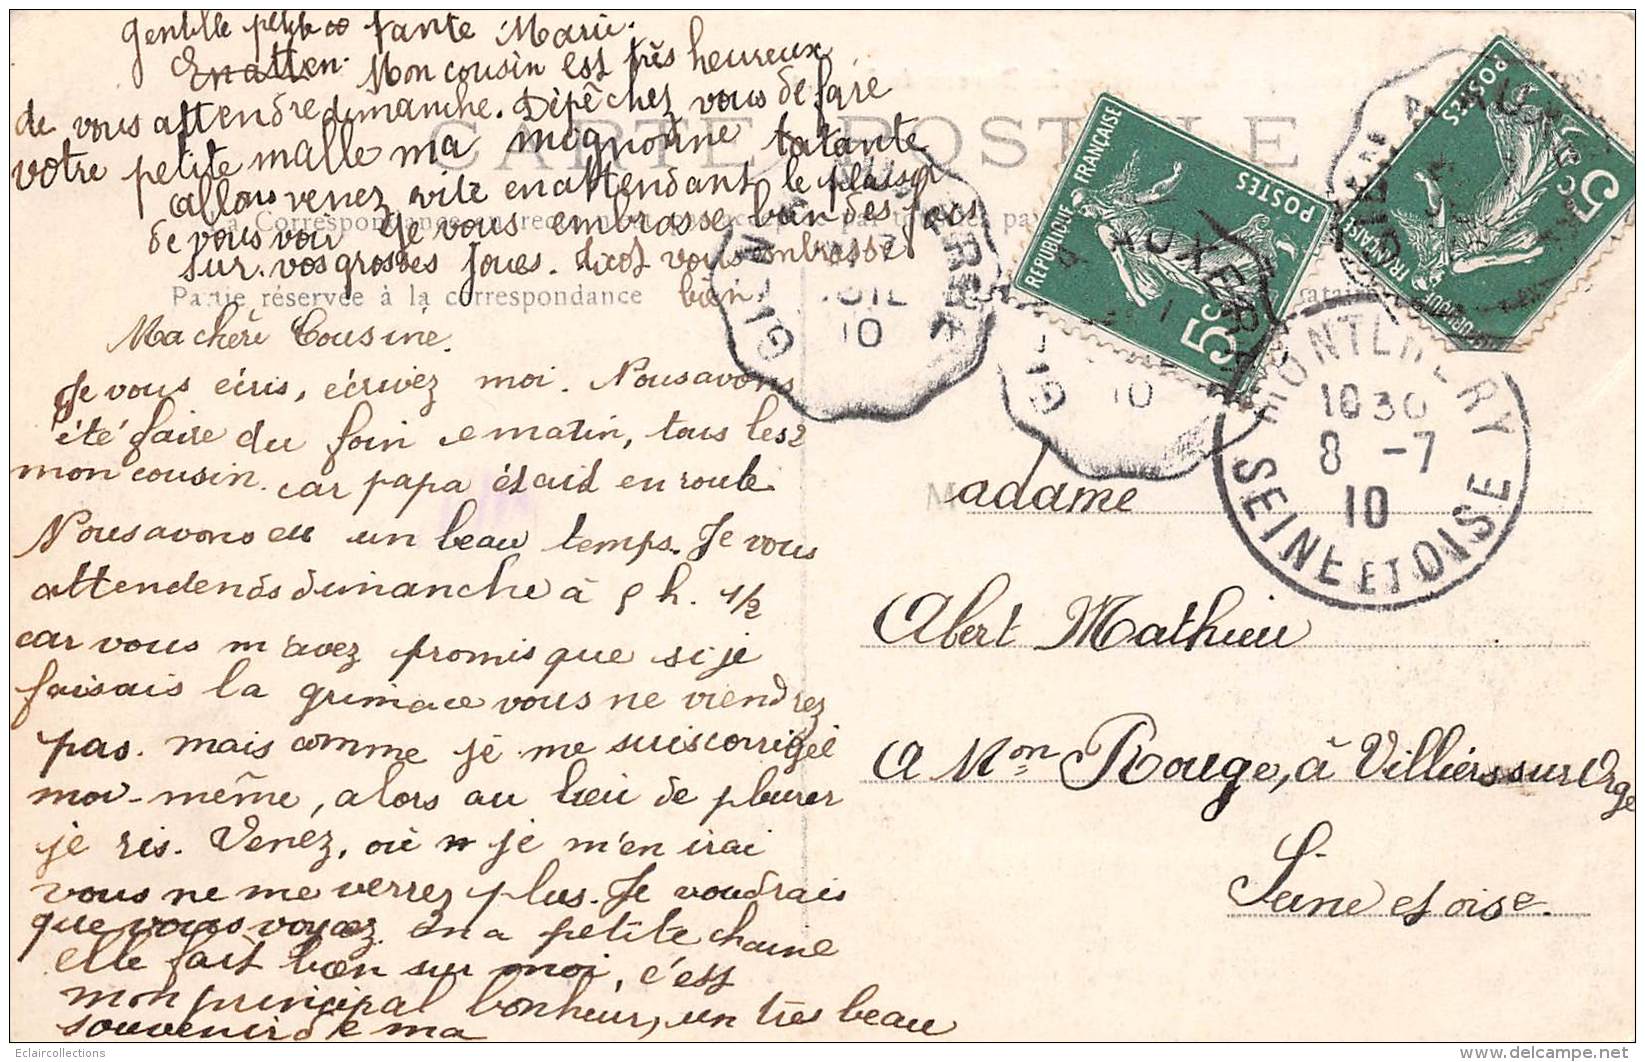 Gentille petite tante Marie.
En atten. Mon cousin est très heureux
de vous attendre dimanche. Dépêchez vous de faire
votre petite malle ma mignonne tatante
allons venez vite en attendant le plaisir
de vous voir Je vous embrasse bien des fois
sur vos grosses joues. vous embrasse
bien
CARTE POSTALE
Partie réservée à la correspondance
Ma chère Cousine.
Je vous écris, écrivez moi. Nous avons
été faire du foin ce matin, tous les 2
mon cousin. car papa était en route
Nous avons eu un beau temps. Je vous
attendends dimanche à 5 h. 1/2
car vous m'avez promis que si je
faisais la grimace vous ne viendrez
pas. mais comme je me suis corrigée
moi-même, alors au lieu de pleurer
je ris. Venez, où je m'en irai
vous ne me verrez plus. Je voudrais
que vous voyez ma petite chaine
elle fait bien sur moi, c'est
mon principal bonheur, un très beau
souvenir de ma
REPUBLIQUE FRANÇAISE
POSTES
5c
POSTES
5c
10
10
MONTLHERY
10 30
8 -7
10
SEINE ET OISE
Madame
Abert Mathieu
A Mon Rouge, à Villiers sur Orge
Seine et oise.
Eclaircollections
www.delcampe.net